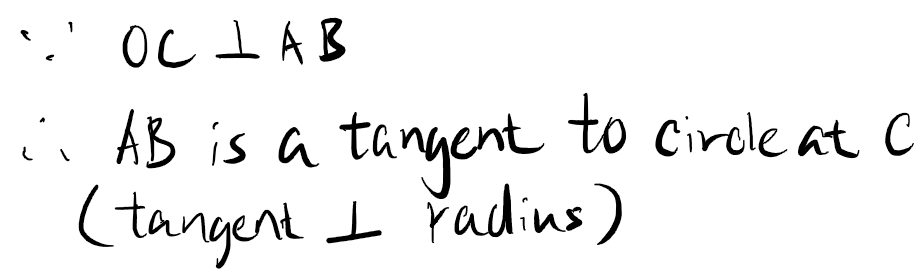 ∵ OC ⊥ AB
∴ AB is a tangent to circle at C
(tangent ⊥ radius)